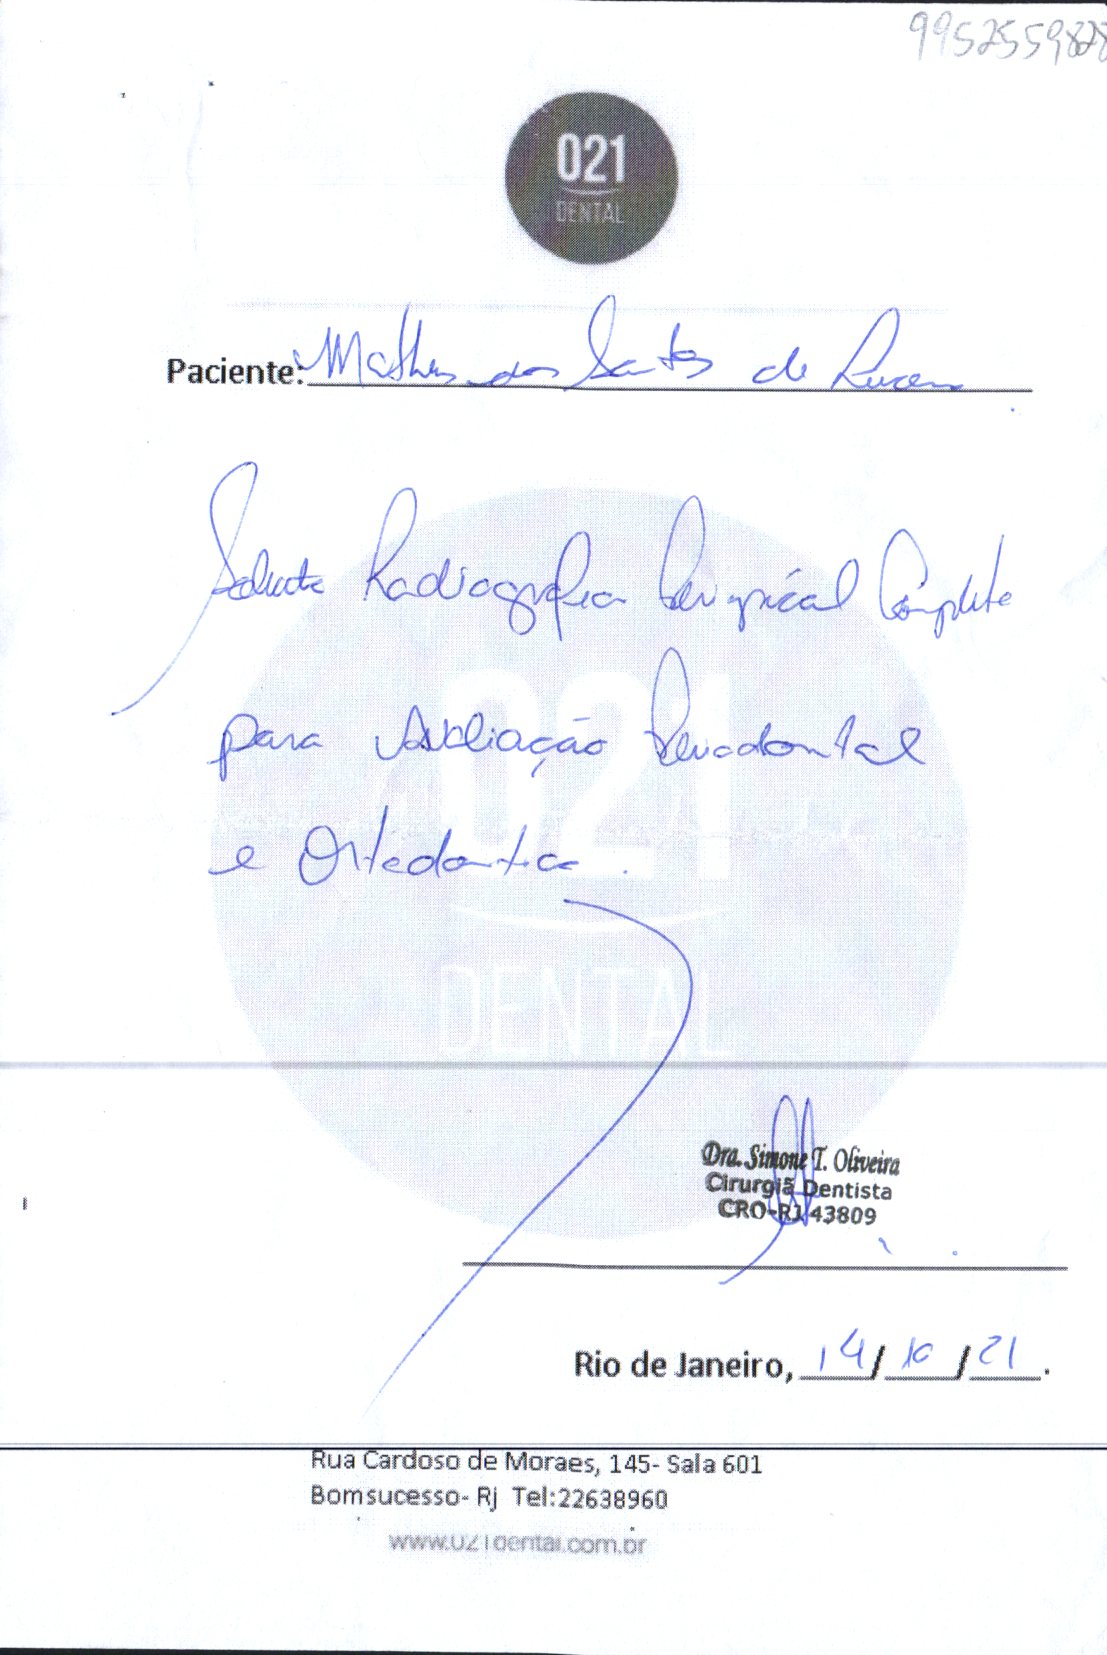 9952559828
021
DENTAL
Paciente: Matheus dos Santos de Lucena
Solicito Radiografia Periapical Completa
para Avaliação Periodontal
e Ortodontica.
021
DENTAL
Dra. Simone T. Oliveira
Cirurgiã Dentista
CRO-RJ 43809
Rio de Janeiro, 14/10/21.
Rua Cardoso de Moraes, 145- Sala 601
Bomsucesso- Rj Tel:22638960
www.021dental.com.br